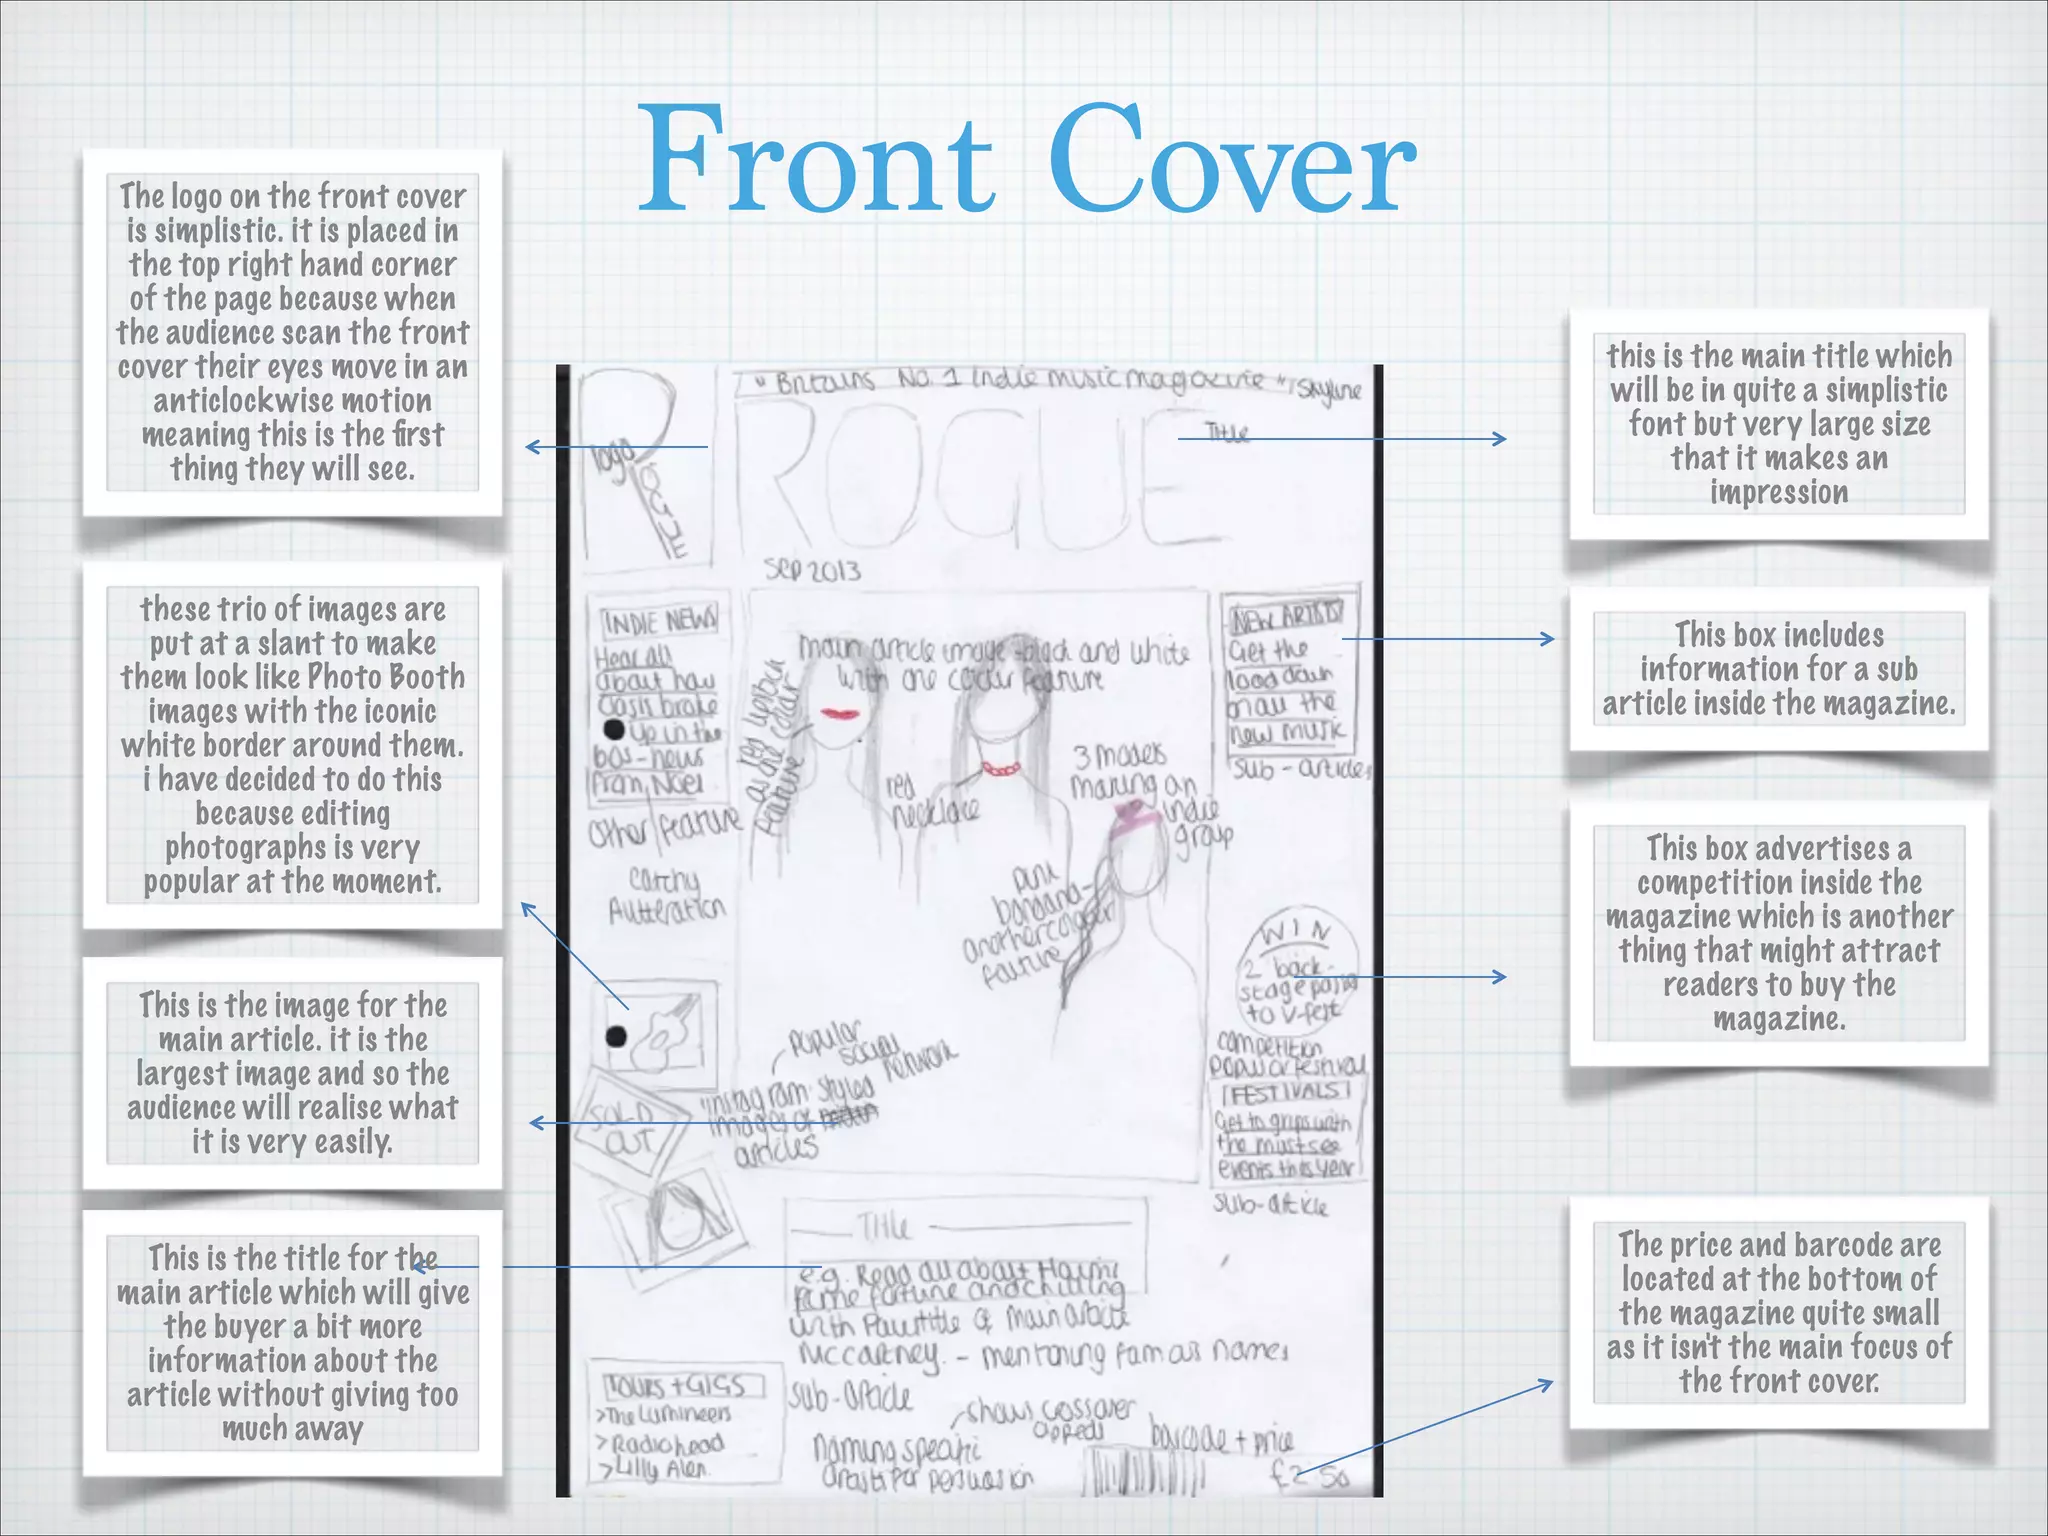 Front Cover
The logo on the front cover
is simplistic. it is placed in
the top right hand corner
of the page because when
the audience scan the front
cover their eyes move in an
anticlockwise motion
meaning this is the first
thing they will see.
these trio of images are
put at a slant to make
them look like Photo Booth
images with the iconic
white border around them.
i have decided to do this
because editing
photographs is very
popular at the moment.
This is the image for the
main article. it is the
largest image and so the
audience will realise what
it is very easily.
This is the title for the
main article which will give
the buyer a bit more
information about the
article without giving too
much away
"Britains No.1 Indie music magazine" Skyline
R
logo
OGUE
ROGUE
Title
Sep 2013
INDIE NEWS
Hear all
about how
Oasis broke
up in the
90s - news
from Noel
other feature
catchy
main article image - black and white
with one colour feature
red lipstick
as one colour
feature
red
necklace
3 models
making an
indie
group
pink
bandana -
another colour
feature
NEW ARTISTS
Get the
load down
on all the
new music
Sub - articles
WIN
2 back-
stage passes
to V-fest
competition
popular festival
FESTIVALS!
Get to grips with
the must see
events this year
sub-article
popular
social
network
"instagram" styled
images of
articles
SOLD
OUT
Title
e.g. Read all about Haim's
fame fortune and chilling
with Paul title of main article
McCartney. - mentioning famous names
TOURS + GIGS
>The Lumineers
>Radiohead
>Lilly Allen
sub-article
shows crossover
appeal
Naming specific
artists for persuasion
barcode + price
£2.50
this is the main title which
will be in quite a simplistic
font but very large size
that it makes an
impression
This box includes
information for a sub
article inside the magazine.
This box advertises a
competition inside the
magazine which is another
thing that might attract
readers to buy the
magazine.
The price and barcode are
located at the bottom of
the magazine quite small
as it isn't the main focus of
the front cover.